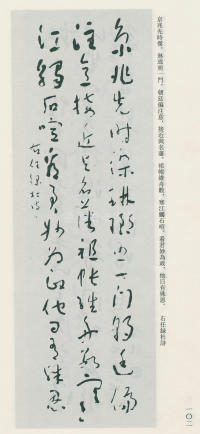 京兆先時傑,琳瑯照一門。朝廷偏注意,接近與名藩。祖帳維舟數,寒江觸石喧。看君妙為政,他日有殊恩。 右任錄杜詩
一〇二
京兆先時傑琳瑯照一門朝廷偏
注意接近與名藩祖帳維舟數寒
江觸石喧看君妙為政他日有殊恩
右任錄杜詩